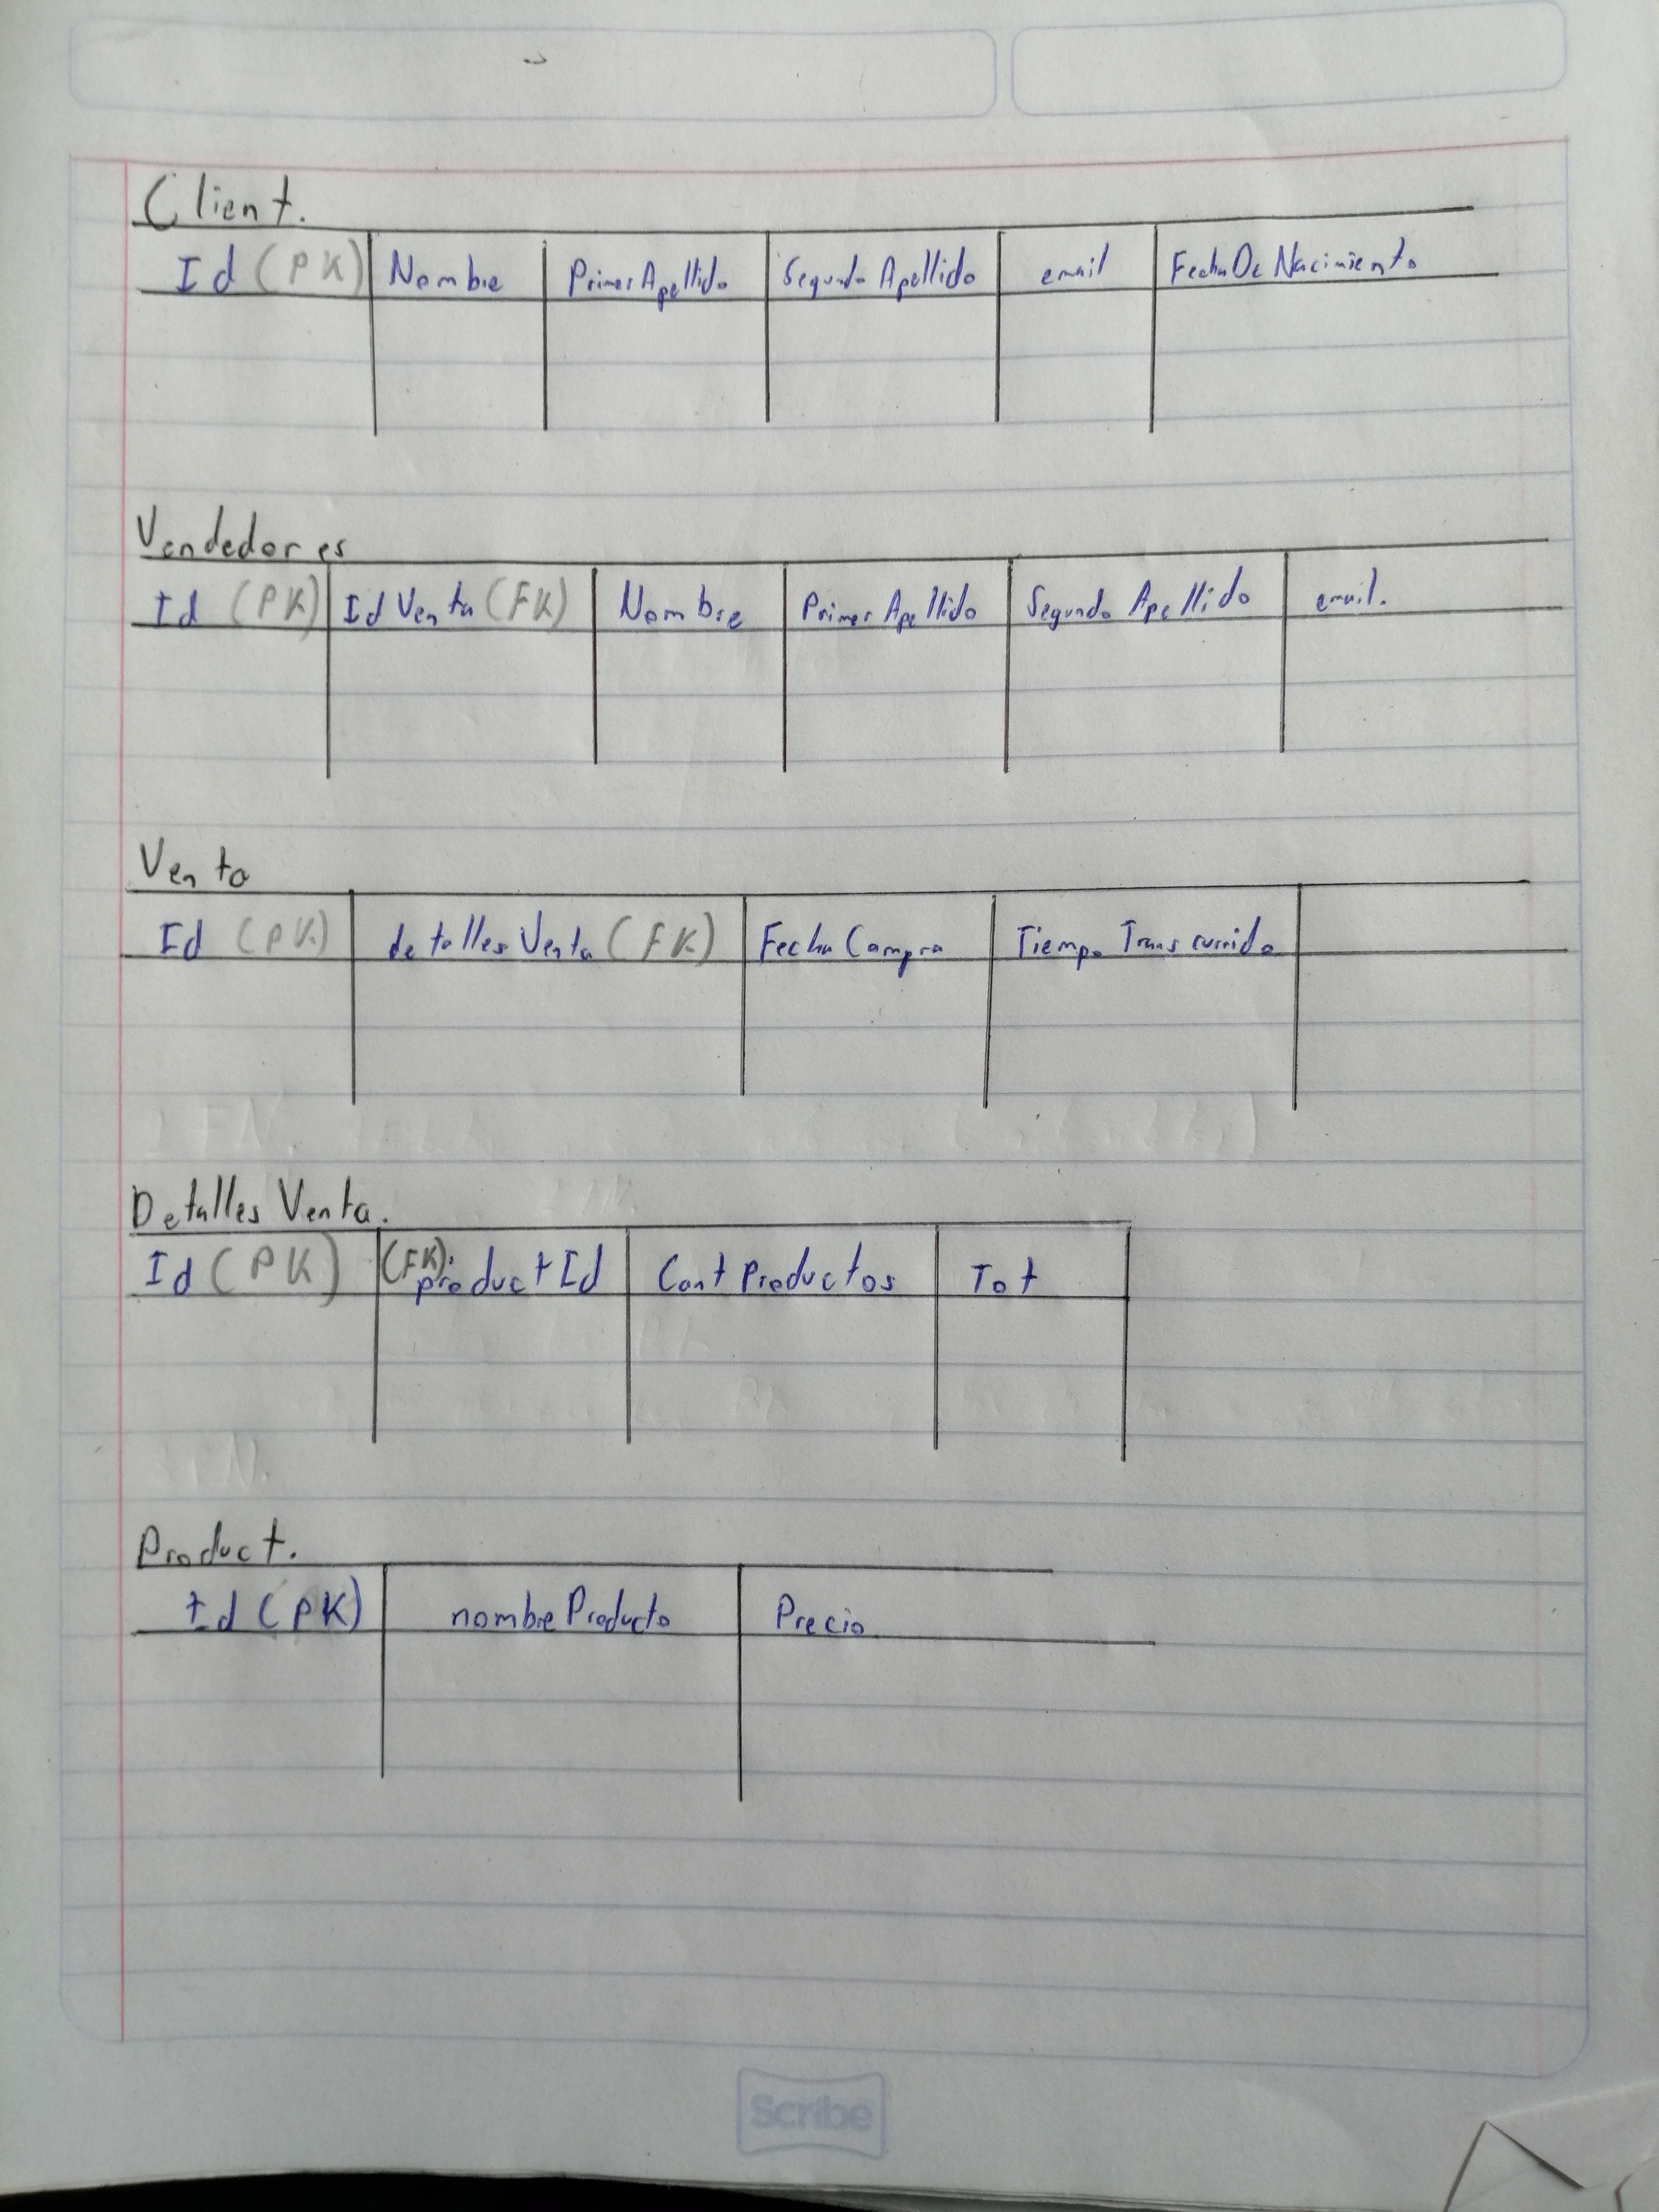 Client.
Id (PK) Nombre PrimerApellido Segundo Apellido email FechaDeNacimiento
Vendedores
Id (PK) Id Venta (FK) Nombre PrimerApellido Segundo Apellido email.
Venta
Id (PK) detallesVenta (FK) FechaCompra TiempoTranscurrido
Detalles Venta.
Id (PK) (FK). productId CantProductos Tot
Product.
Id (PK) nombreProducto Precio
Scribe